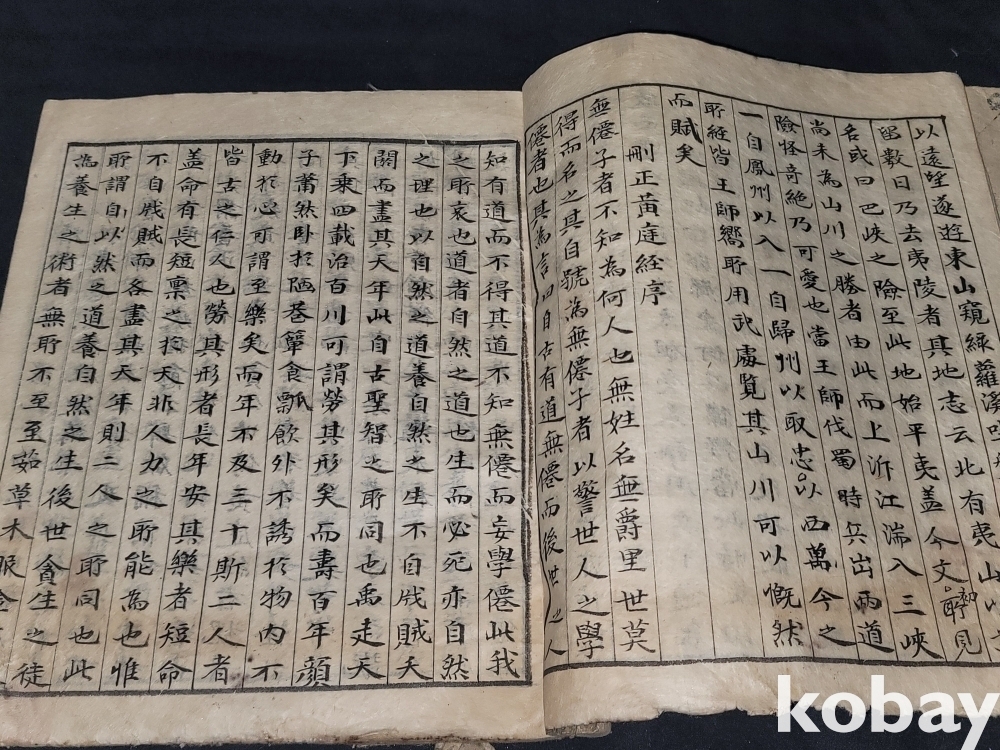 以遠望遂遊東山窺綠蘿溪
留數日乃去夷陵者其地志云北有夷山以
名或曰巴峽之險至此地始平夷盖今文初所見
尚未為山川之勝者由此而上泝江湍入三峽
險怪奇絶乃可愛也當王師伐蜀時兵出兩道
一自鳳州以入一自歸州以取忠以西萬今之
所經皆王師嚮所用武處覧其山川可以慨然
而賦矣
刪正黄庭経序
無僊子者不知為何人也無姓名無爵里世莫
得而名之其自號為無僊子者以警世人之學
僊者也其為言曰自古有道無僊而後世之人
知有道而不得其道不知無僊而妄學僊此我
之所哀也道者自然之道也生而必死亦自然
之理也以自然之道養自然之生不自戕賊夭
閼而盡其天年此自古聖智之所同也禹走天
下乗四載治百川可謂勞其形矣而壽百年顔
子蕭然卧於陋巷簞食瓢飲外不誘於物内不
動於心可謂至樂矣而年不及三十斯二人者
皆古之仁人也勞其形者長年安其樂者短命
盖命有長短禀之於天非人力之所能為也惟
不自戕賊而各盡其天年則二人之所同也此
所謂自以然之道養自然之生後世貪生之徒
為養生之術者無所不至至茹草木服金
kobay